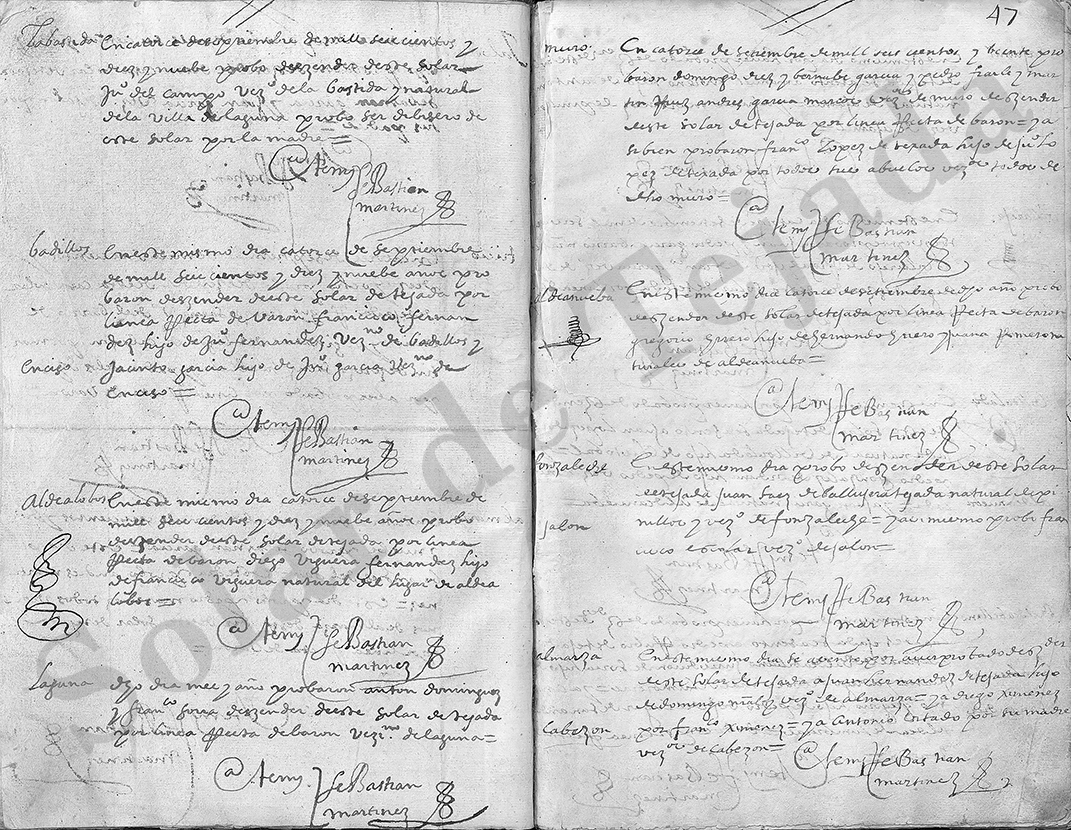 47
Labastida
En catorce de septiembre de mill seis cientos y
diez y nuebe probo deszender deste solar
Ju° del campo vez° de la bastida y natural
de la villa de laguna probo ser dibisero de
este solar por la madre =
Ante my
Sebastian
martinez
badillos
En este mismo dia catorce de septiembre
de mill seis cientos y diez y nuebe años pro
baron deszender deste solar de tejada por
linea Recta de varon francisco fernan
dez hijo de Ju° fernandez vez° de badillos y
Enciso
Jacinto garcia hijo de Ju° garcia vez^no de
Enciso =
Ante my
Sebastian
martinez
Aldealobos
En este mismo dia catorce de septiembre de
mill seis cientos y diez y nuebe años probo
deszender deste solar de tejada por linea
Recta de baron diego viguera fernandez hijo
de francisco viguera natural del lugar de aldea
lobos =
Ante my
Sebastian
martinez
Laguna
dho dia mes y año probaron anton dominguez
y fran^co deszender deste solar de tejada
por linea Recta de baron vezi^nos de laguna =
Ante my
Sebastian
martinez
muro
En catorce de setiembre de mill seis cientos y beinte pro
baron domingo diez y bernabe garcia y pedro fraile y mar
tin Ruiz andres garcia marcos vez^os de muro deszender
deste solar de tejada por linea Recta de baron = y a
si bien probaron fran^co Lopez de texada hijo de Ju° lo
pez de texada por todos sus abuelos vez^os todos de
dho muro =
Ante my Sebastian
martinez
Aldeanueba
En este mismo dia catorce de setiembre de dho año probo
deszender deste solar de tejada por linea Recta de baron
gregorio hijo de hernando y Juana Romero na
turales de aldeanueba =
Ante my Sebastian
martinez
fonzaleche
En este mismo dia probo deszender deste solar
de tejada juan saez de tejada natural de pi
nillos y vez° de fonzaleche = y asi mismo probo fran
jalon
cisco vez° de jalon =
Ante my Sebastian
martinez
almarza
En este mismo dia se asento por aver probado deszender
deste solar de tejada a juan hernandez de tejada hijo
de domingo vez° de almarza = y a diego ximenez
Cabezon
por fran^co ximenez = y a Antonio por su madre
vez^os de cabezon =
Ante my Sebastian
martinez
Solar de Tejada